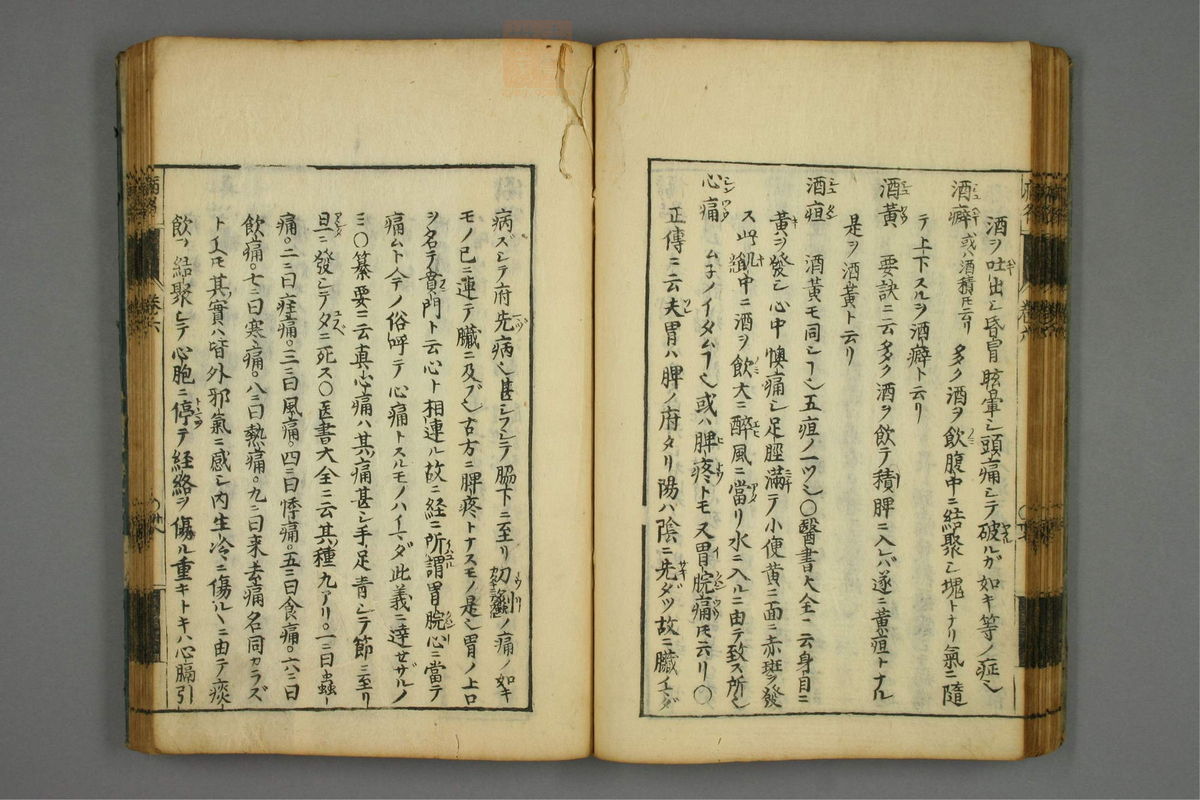 酒ヲ吐出シ昏冒眩暈シ頭痛シテ破ルガ如キ等ノ症也
酒癖 或ハ酒積トモ云リ 多ク酒ヲ飲腹中ニ結聚シ塊トナリ氣ニ隨
テ上下スルヲ酒癖ト云リ
酒黃 要訣ニ云多ク酒ヲ飲テ積脾ニ入レバ遂ニ黃疸トナル
是ヲ酒黃ト云リ
酒疸 酒黃モ同シ五疸ノ一ツ也〇醫書大全ニ云身目ニ
黃ヲ發シ心中懊痛シ足脛滿テ小便黃ニ面ニ赤斑ヲ發
ス此飢中ニ酒ヲ飲大ニ醉風ニ當リ水ニ入ルニ由テ致ス所也
心痛 ム子ノイタム也或ハ脾疼トモ又胃脘痛トモ云リ〇
正傳ニ云夫胃ハ脾ノ府タリ陽ハ陰ニ先ダツ故ニ臟イマダ
病ズシテ府先病也甚シフシテ脇下ニ至リ刀ノ痛ノ如キ
モノ已ニ連テ臟ニ及ブ也古方ニ脾疼トナスモノ是也胃ノ上口
ヲ名テ賁門ト云心ト相連ル故ニ経ニ所謂胃脘心ニ當テ
痛ムト今ノ俗呼テ心痛トスルモノハイマダ此義ニ達セザルノ
ミ〇纂要ニ云真心痛ハ其痛甚シ手足青シテ節ニ至リ
旦ニ發シテタニ死ス〇医書大全ニ云其種九アリ。一ニ曰蟲
痛。二ニ曰疰痛。三ニ曰風痛。四ニ曰悸痛。五ニ曰食痛。六ニ曰
飲痛。七ニ曰寒痛。八ニ曰熱痛。九ニ曰来去痛名同カラズ
トイヘモ其實ハ皆外邪氣ニ感シ内生冷ニ傷ルヽニ由テ痰
飲ヲ結聚シテ心胞ニ停テ経絡ヲ傷ル重キトキハ心膈引